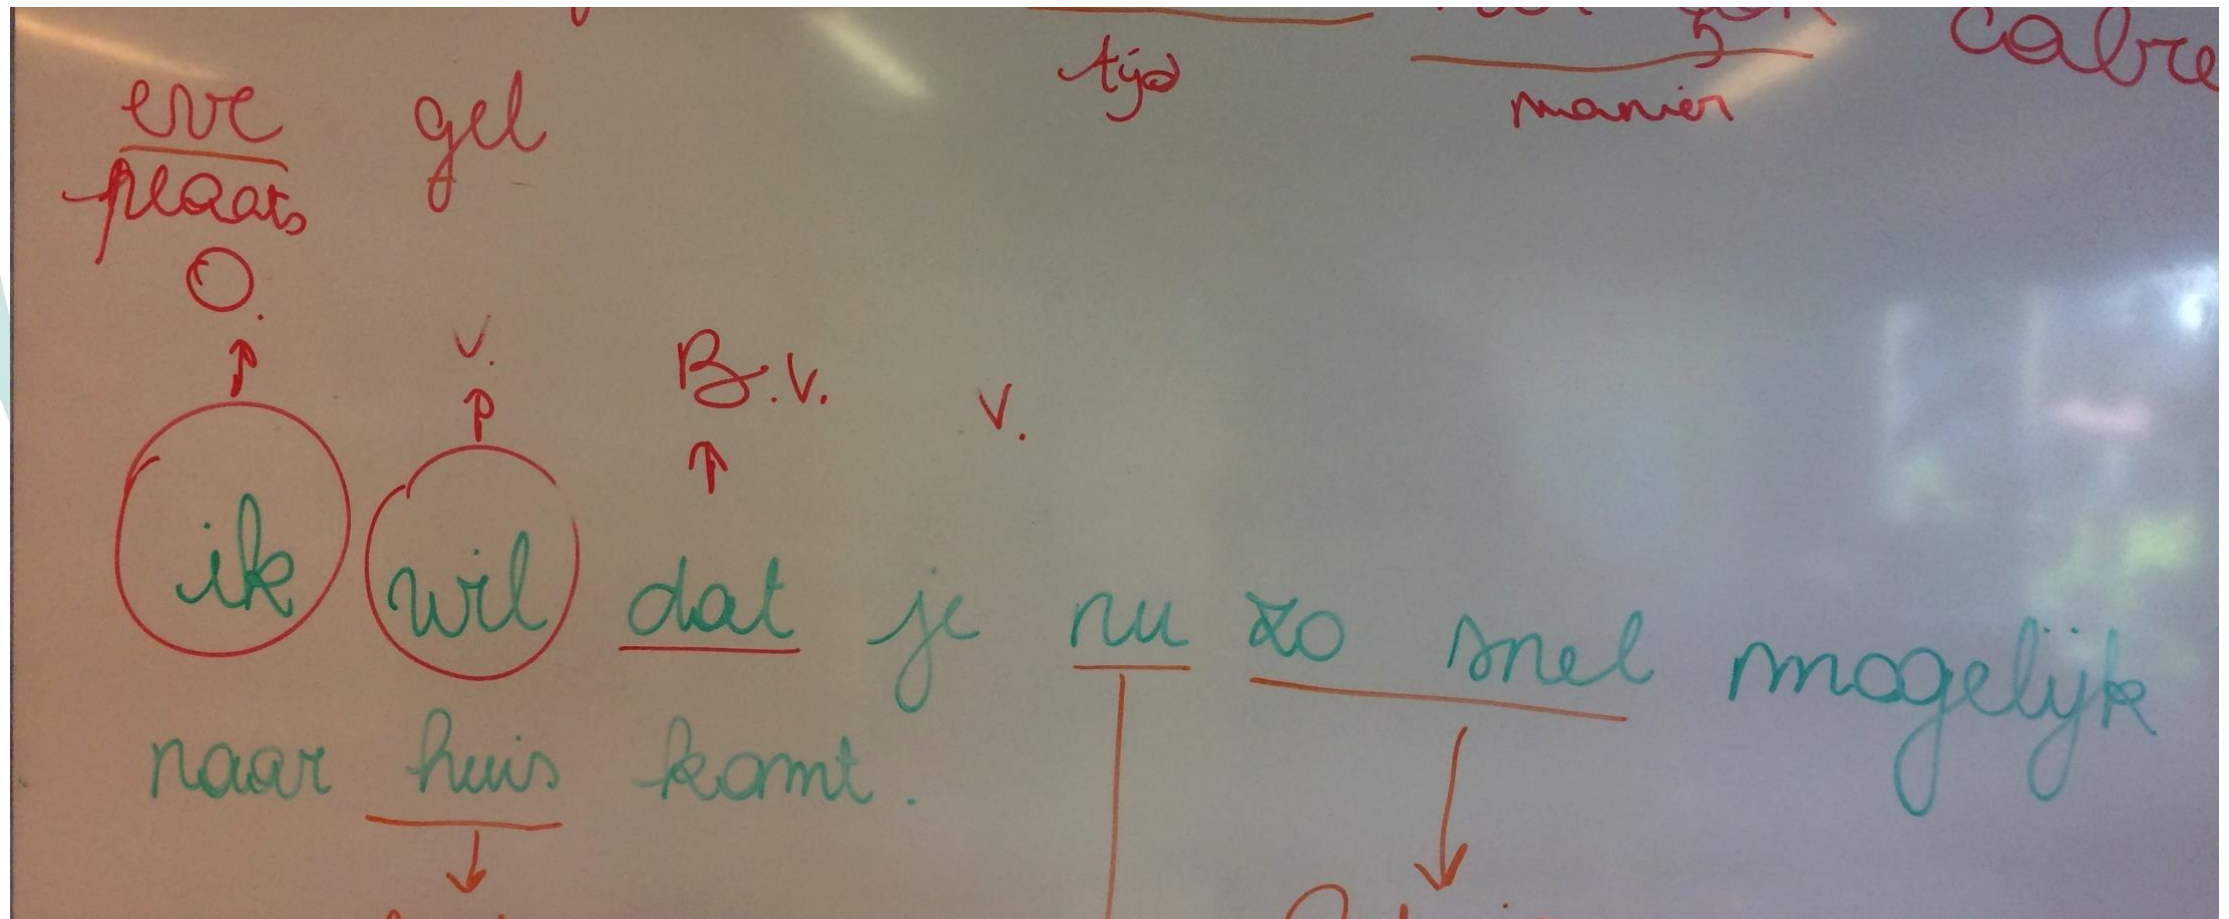 cabre
tijd
manier
eve gel
plaats
O.
V.
B.V. V.
ik wil dat je nu zo snel mogelijk
naar huis komt.